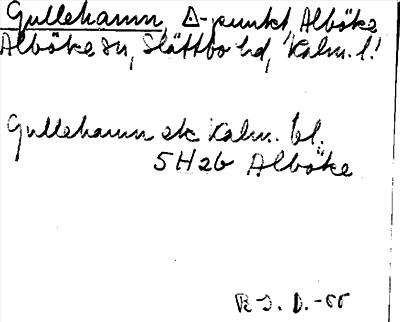 Gullehamn, △-punkt, Alböke
Alböke sn, Slättbo hd, Kalm. l.
Gullehamn ek Kalm. bl.
5H2b Alböke